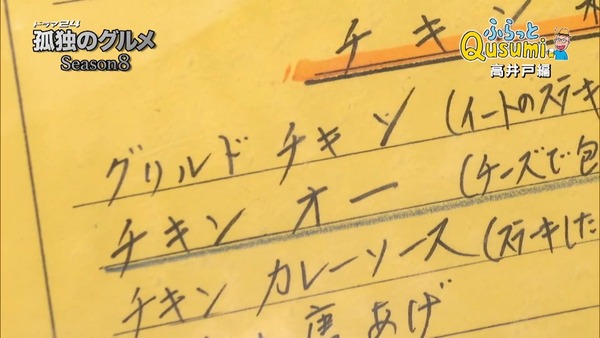 ドラマ24
孤独のグルメ
Season8
ふらっと
Qusumi
高井戸編
チキン
グリルド チキン (イートのステーキ
チキン オー (チーズで包
チキン カレーソース (ステーキした
唐あげ